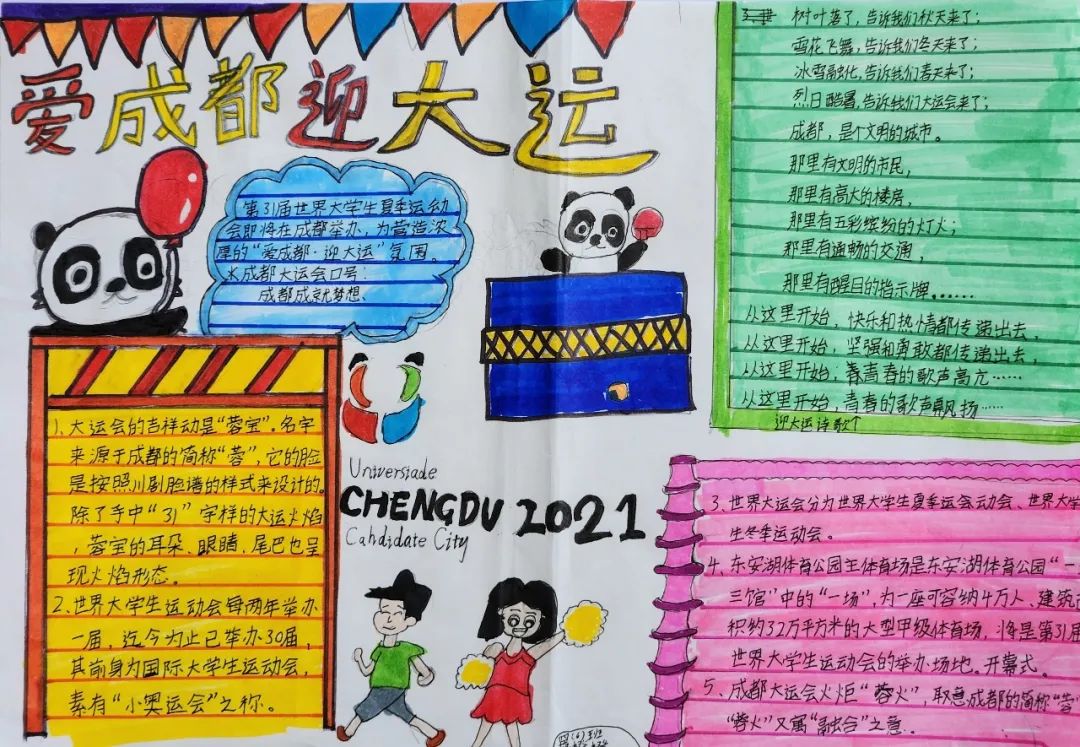 爱成都迎大运
第31届世界大学生夏季运动
会即将在成都举办,为营造浓
厚的“爱成都·迎大运”氛围。
成都大运会口号:
成都成就梦想、
1、大运会的吉祥动是“蓉宝”。名字
来源于成都的简称“蓉”,它的脸
是按照川剧脸谱的样式来设计的。
除了手中“31”字样的大运火焰
,蓉宝的耳朵、眼睛,尾巴也呈
现火焰形态。
2、世界大学生运动会每两年举办
一届,迄今为止已举办30届,
其前身为国际大学生运动会,
素有“小奥运会”之称。
Universiade
CHENGDU 2021
Candidate City
树叶落了,告诉我们秋天来了;
雪花飞舞,告诉我们冬天来了;
冰雪融化,告诉我们春天来了;
烈日酷暑,告诉我们大运会来了;
成都,是个文明的城市。
那里有文明的市民,
那里有高大的楼房,
那里有五彩缤纷的灯火;
那里有通畅的交通,
那里有醒目的指示牌.……
从这里开始,快乐和热情都传递出去,
从这里开始,坚强和勇敢都传递出去,
从这里开始,青春的歌声高亢……
从这里开始,青春的歌声飘扬……
迎大运诗歌↑
3、世界大运会分为世界大学生夏季运会动会、世界大学
生冬季运动会。
4、东安湖体育公园主体育场是东安湖体育公园“一
三馆”中的“一场”,为一座可容纳4万人、建筑
积约32万平方米的大型甲级体育场,将是第31届
世界大学生运动会的举办场地。开幕式。
5、成都大运会火炬“蓉火”,取意成都的简称“蓉”
“蓉火”又寓“融合”之意。